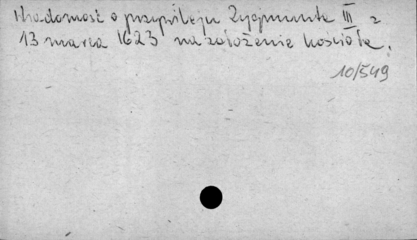 Wiadomość o przywileju Zygmunta III z
13 marca 1623 na założenie kościoła.
10/549